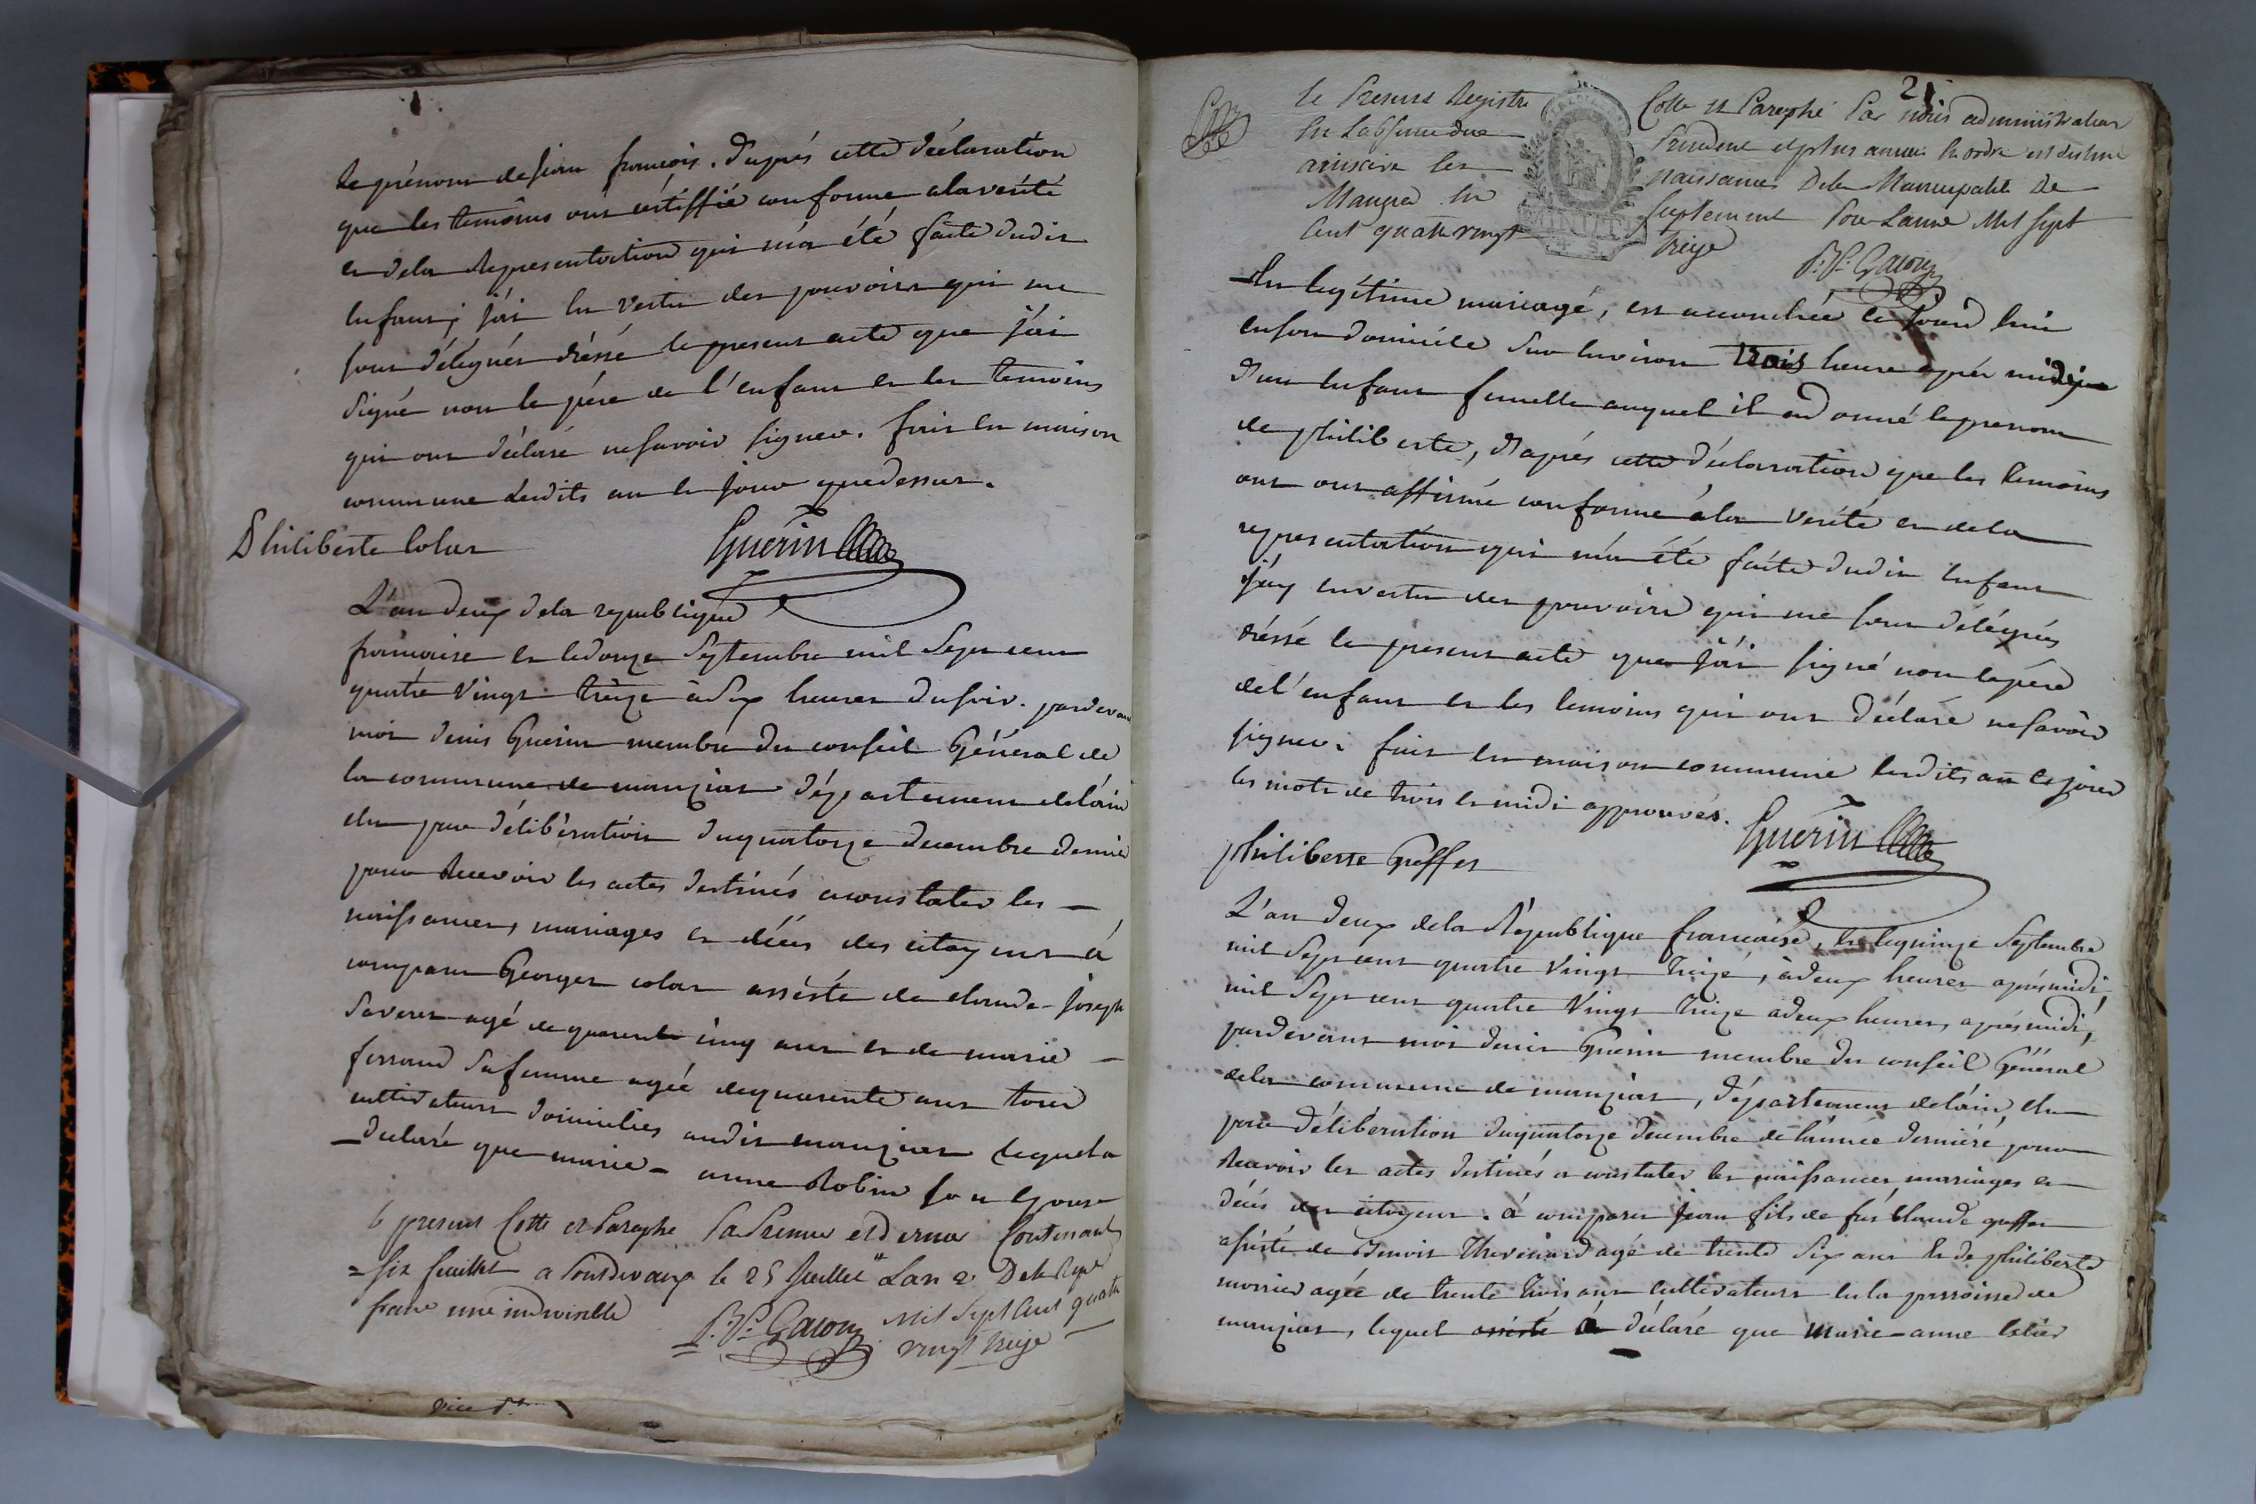 le prénom de jean francois. d'aprés cette déclaration
que les temoins ont certiffié conforme a la verité
et de la Representation qui m'a été faite dudit
enfant, j'ai en vertu des pouvoirs qui me
sont délégués dréssé le present acte que j'ai
signé non le pére de l'enfant et les temoins
qui ont déclaré ne savoir signer. fait en maison
commune lesdits an et jour que dessus.
Guerin
Philiberte Colas
L'an deux de la republique
francaise et le douze Septembre mil Sept cent
quatre vingt treize à Six heures du soir. pardevant
moi denis Guerin membre du conseil Général de
la commune de manziat département de l'ain
élu par délibération du quatorze decembre dernier
pour Recevoir les actes destinés a constater les
naissances, mariages et décés des citoyens à
comparu Georges colas assisté de claude-joseph
Saveret agé de quarente cinq ans et de marie
ferrand Sa femme agée de quarente ans tous
cultivateurs domiciliés audit manziat lequel a
declaré que marie-anne Robin son epouse
le present Cotté et Paraphé Par Premier et dernier Contenant
six feuillet a Pontdevaux le 25 Juillet Lan 2 De la Repu
franc une indivisible
Mil Sept Cent quatre
vingt treize
P. P. Gacon
21
le Present Registre Cotté et Paraphé Par nous administrateur
En Labsence du President et plus ancien En ordre est destiné
a inscrire les naissances De la Municipalité De
Manziat En Supplement Pour Lannée Mil Sept
Cent quatre vingt treize
P. P. Gacon
En legitime mariagé, est accouchée ce jourd hui
en son domicile Sur environ trois heure aprés midi
d'un enfant femelle auquel il a donné le prenom
de philiberte, d'aprés cette déclaration que les temoins
ont ont affirmé conforme á la verité et de la
representation qui m'a été faite dudit enfant
j'ay en vertu des pouvoirs qui me sont délégués
dréssé le present acte que j'ai signé non le pére
de l'enfant et les temoins qui ont déclaré ne savoir
signer. fait en maison commune lesdits an et jour
les mots de trois et midi approuvés.
Guerin
philiberte Greffet
L'an deux de la République francaise, et le quinze Septembre
mil Sept cent quatre vingt treize, à deux heures aprés midi,
mil Sept cent quatre vingt treize a deux heures, aprés midi,
pardevant moi denis Guerin membre du conseil Général
de la commune de manziat, département de l'ain, élu
par délibération du quatorze decembre de l'année derniéré, pour
Recevoir les actes destinés a constater les naissances mariages et
décés des citoyens. à comparu jean fils de fus claude greffet
assisté de Benoit Thevenard agé de trente Six ans et de philiberte
morier agée de trente trois ans cultivateurs en la parroisse de
manziat, lequel assisté à déclaré que Marie-anne